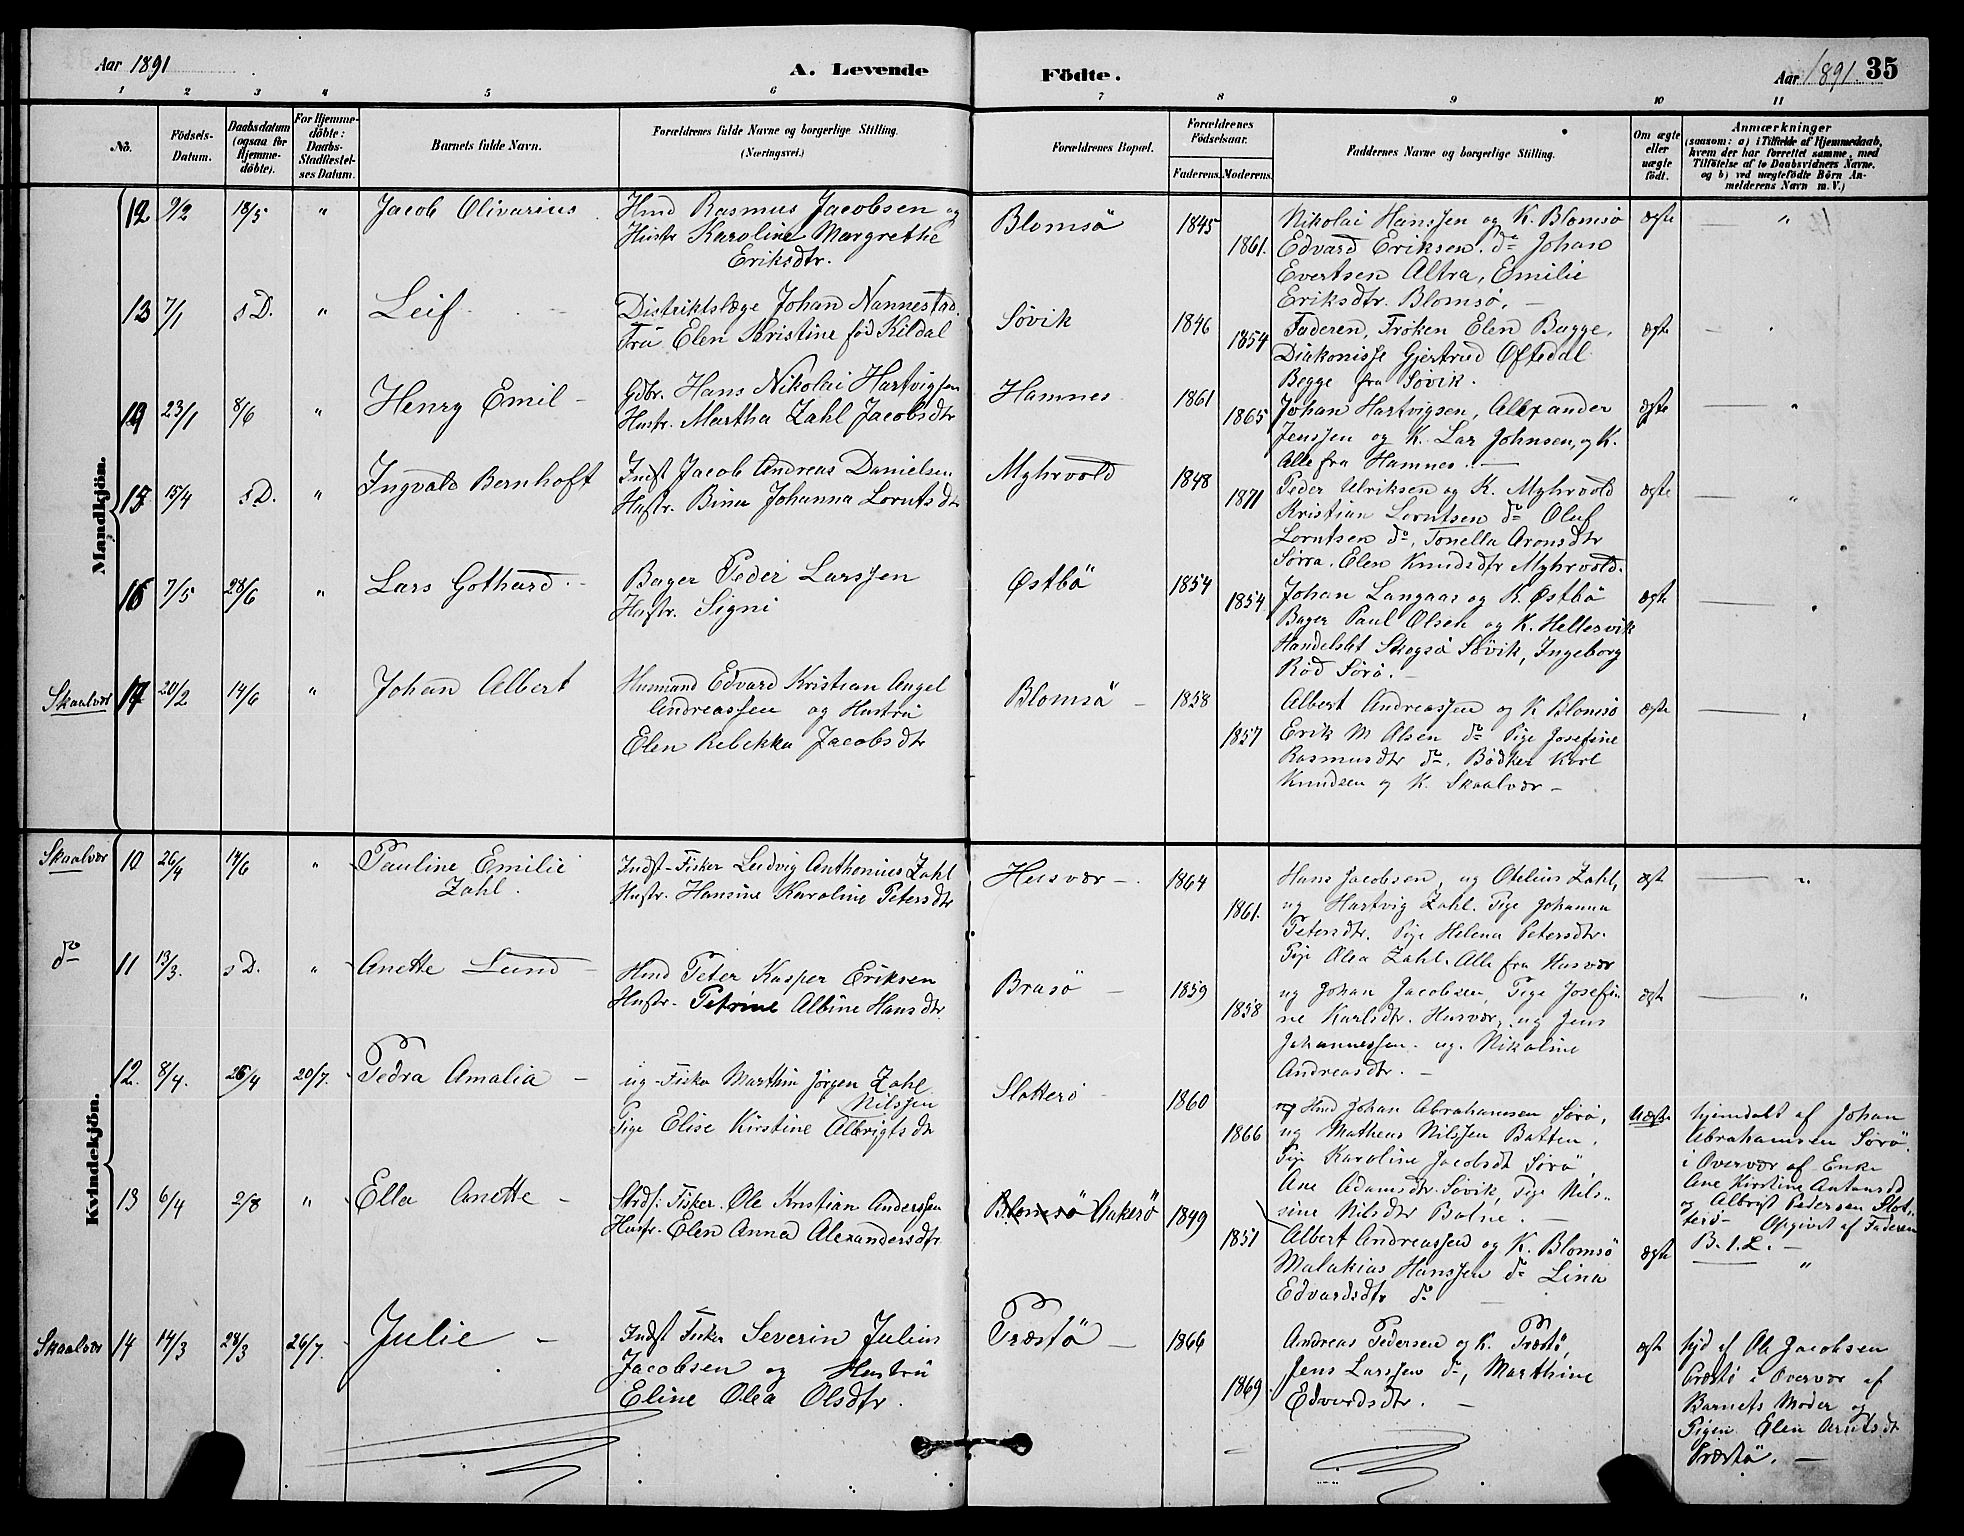 Aar 1891
A. Levende
Födte.
Aar 1891
35
1 2 3 4 5 6 7 8 9 10 11
No.
Födsels-
Datum.
Daabsdatum
(ogsaa for
Hjemme-
döbte).
For Hjemme-
döbte:
Daabs-
Stadfæstel-
ses Datum.
Barnets fulde Navn.
Forældrenes fulde Navne og borgerlige Stilling.
(Næringsvei.)
Forældrenes Bopæl.
Forældrenes
Födselsaar.
Faderens. Moderens.
Faddernes Navne og borgerlige Stilling.
Om ægte
eller
uægte
født.
Anmærkninger
(saasom: a) i Tilfælde af Hjemmedaab,
hvem der har forrettet samme, med
Tilföielse af to Daabsvidners Navne,
og b) ved uægtefödte Börn An-
melderens Navn m. V.)
Mandkjön.
12 9/2 18/5 " Jacob Olivarius
Hmd Rasmus Jacobsen og
Hustr Karoline Margrethe
Eriksdtr.
Blomsö 1845 1861.
Nikolai Hanssen og K. Blomsö
Edvard Eriksen. do Johan
Evertsen Altra, Emilie
Eriksdtr. Blomsö. -
ægte "
13 7/1 s D. " Leif
Distriktslæge Johan Nannestad
Fru Elen Kristine föd Kildal
Sövik 1846 1854
Faderen, Fröken Elen Bugge,
Diakonisse Gjertrud Oftedal
Begge fra Sövik.
ægte "
14 23/1 8/6 " Henry Emil -
Gdbr. Hans Nikolai Hartvigsen
Hustr. Martha Zahl Jacobsdtr
Hamnes 1861 1865
Johan Hartvigsen, Alexander
Jenssen og K. Lar Johnsen, og K.
Alle fra Hamnes. -
ægte "
15 15/4 s D. " Ingvald Bernhoft
Indst Jacob Andreas Danielsen
Hustr. Bina Johanna Lorntsdtr
Myhrvold 1848 1871
Peder Ulriksen og K. Myhrvold
Kristian Lorntsen do Oluf
Lorntsen do, Tonella Aronsdtr
Sörra, Elen Knudsdtr Myhrvold.
ægte "
16 7/5 28/6 " Lars Gothard
Bager Peder Larssen
Hustr. Signi
Østbö 1854 1854
Johan Langaas og K. Østbö
Bager Paul Olsen og K. Hellesvik
Handelsbt Skogsö Sövik, Ingeborg
Röd Sörö. -
ægte "
Skaalvær 17 20/2 14/6 " Johan Albert
Husmand Edvard Kristian Angel
Andreassen og Hustru
Elen Rebekka Jacobsdtr
Blomsö - 1858 1857
Albert Andreassen og K Blomsö
Erik M Olsen do Pige Josefine
Rasmusdtr do. Bödker Karl
Knudsen og K. Skaalvær -
ægte "
Kvindekjön.
Skaalvær 10 26/4 14/6 " Pauline Emilie
Zahl.
Indst-Fisker Ludvig Anthonius Zahl
Hustr. Hansine Karoline Petersdtr
Husvær - 1864 1861.
Hans Jacobsen, ug Otelius Zahl,
ug Hartvig Zahl. Pige Johanna
Petersdtr. Pige Helena Petersdtr.
Pige Olea Zahl. Alle fra Husvær
ægt "
do 11 13/3. s D. " Anette Lund -
Hmd Peter Kasper Eriksen
Hustr- Petrine Albine Hansdtr.
Brasö - 1859 1858
ug Johan Jacobsen, Pige Josefi-
ne Karlsdtr. Husvær, ug Jens
Johannessen. ug. Nikoline
Andreasdtr. -
ægt "
12. 8/4. 26/4 20/7. Pedra Amalia -
ug-Fisker Marthin Jörgen Zahl
Nilssen
Pige Elise Kirstine Albrigtsdtr
Slotterö 1860 1866
Hmd Johan Abrahamsen Sörö,
ug Matheus Nilssen Batten.
Pige Karoline Jacobsdt Sörö
Ane Adamsdtr. Sövik, Pige Nils-
sine Nilsdtr Botne. -
Uægte
hjemdøbt af Johan
Abrahamsen Sörö
i Overvær af Enke
Ane Kirstine Antonsdt
og Albrigt Pedersen Slot-
terö- Opgivet af Faderen
B. 1. L. -
13 6/4 2/8 " Ella Anette -
Strds. Fisker. Ole Kristian Anderssen
Hustr- Elen Anna Alexandersdtr.
Blomsö Aakerö 1849 1851
Albert Andreassen og K. Blomsö
Malakias Hanssen do Lina
Edvardsdtr do -
ægt "
Skaalvær 14 14/3 28/3 26/7. Julie -
Indst Fisker Severin Julius
Jacobsen og Hustru
Eline Olea Olsdtr.
Præstö - 1866 1869.
Andreas Pedersen og K. Præstö,
Jens Larssen do, Marthine
Edvardsdtr. -
ægt
hjd af Ole Jacobsen
Præstö i Overvær af
Barnets Moder og
Pigen Elen Arntsdt
Præstö. -